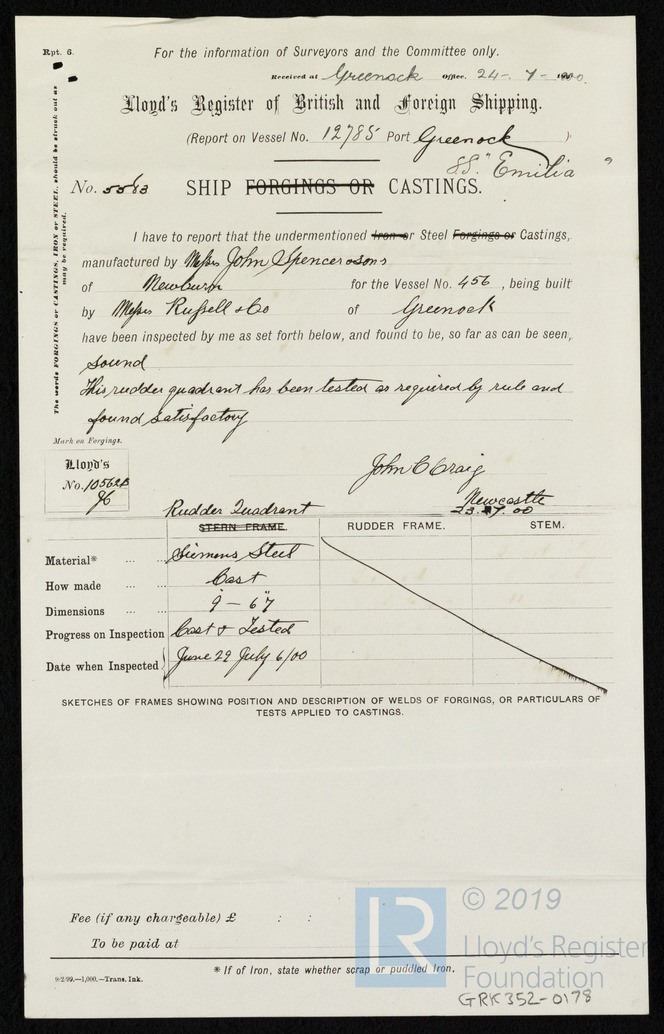 Rpt. 6.
For the information of Surveyors and the Committee only.
Received at Greenock Office, 24 - 7 - 1900.
Lloyd's Register of British and Foreign Shipping.
(Report on Vessel No. 12785 Port Greenock )
S.S. "Emilia"
No. 5583 SHIP FORGINGS OR CASTINGS.
The words FORGINGS or CASTINGS, IRON or STEEL, should be struck out as may be required.
I have to report that the undermentioned Iron or Steel Forgings or Castings,
manufactured by Messrs John Spencer & Sons
of Newburn for the Vessel No. 456, being built
by Messrs Russell & Co of Greenock
have been inspected by me as set forth below, and found to be, so far as can be seen,
sound
This rudder quadrant has been tested as required by rule and
found satisfactory
Mark on Forgings.
Lloyd's
No. 10562B
John C Craig
Newcastle
23.7.00
Rudder Quadrant
STERN FRAME. RUDDER FRAME. STEM.
Material* Siemens Steel
How made Cast
Dimensions 9 - 6"
Progress on Inspection Cast & Tested
Date when Inspected June 29 July 6/00
SKETCHES OF FRAMES SHOWING POSITION AND DESCRIPTION OF WELDS OF FORGINGS, OR PARTICULARS OF
TESTS APPLIED TO CASTINGS.
Fee (if any chargeable) £ : :
To be paid at
* If of Iron, state whether scrap or puddled Iron.
9/2/99.—1,000.—Trans. Ink.
LR
© 2019
Lloyd's Register
Foundation
GRK352-0178